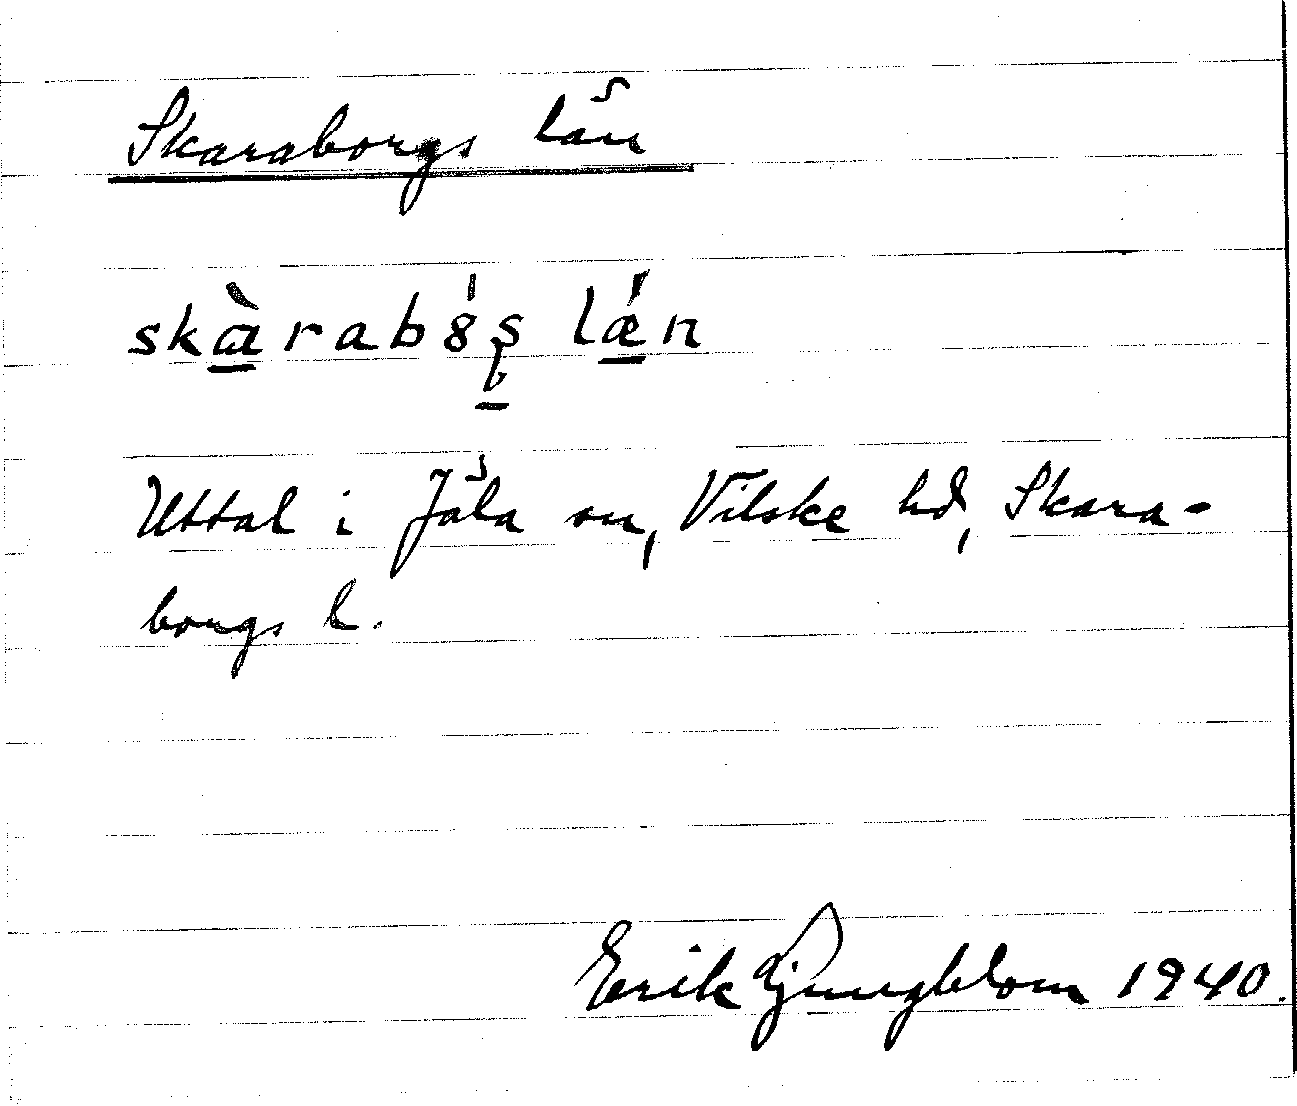 Skaraborgs län
skàrabó̤ș lǽn
Uttal i Jäla sn, Vilske hd, Skara-
borgs l.
Erik Ljungblom 1940.